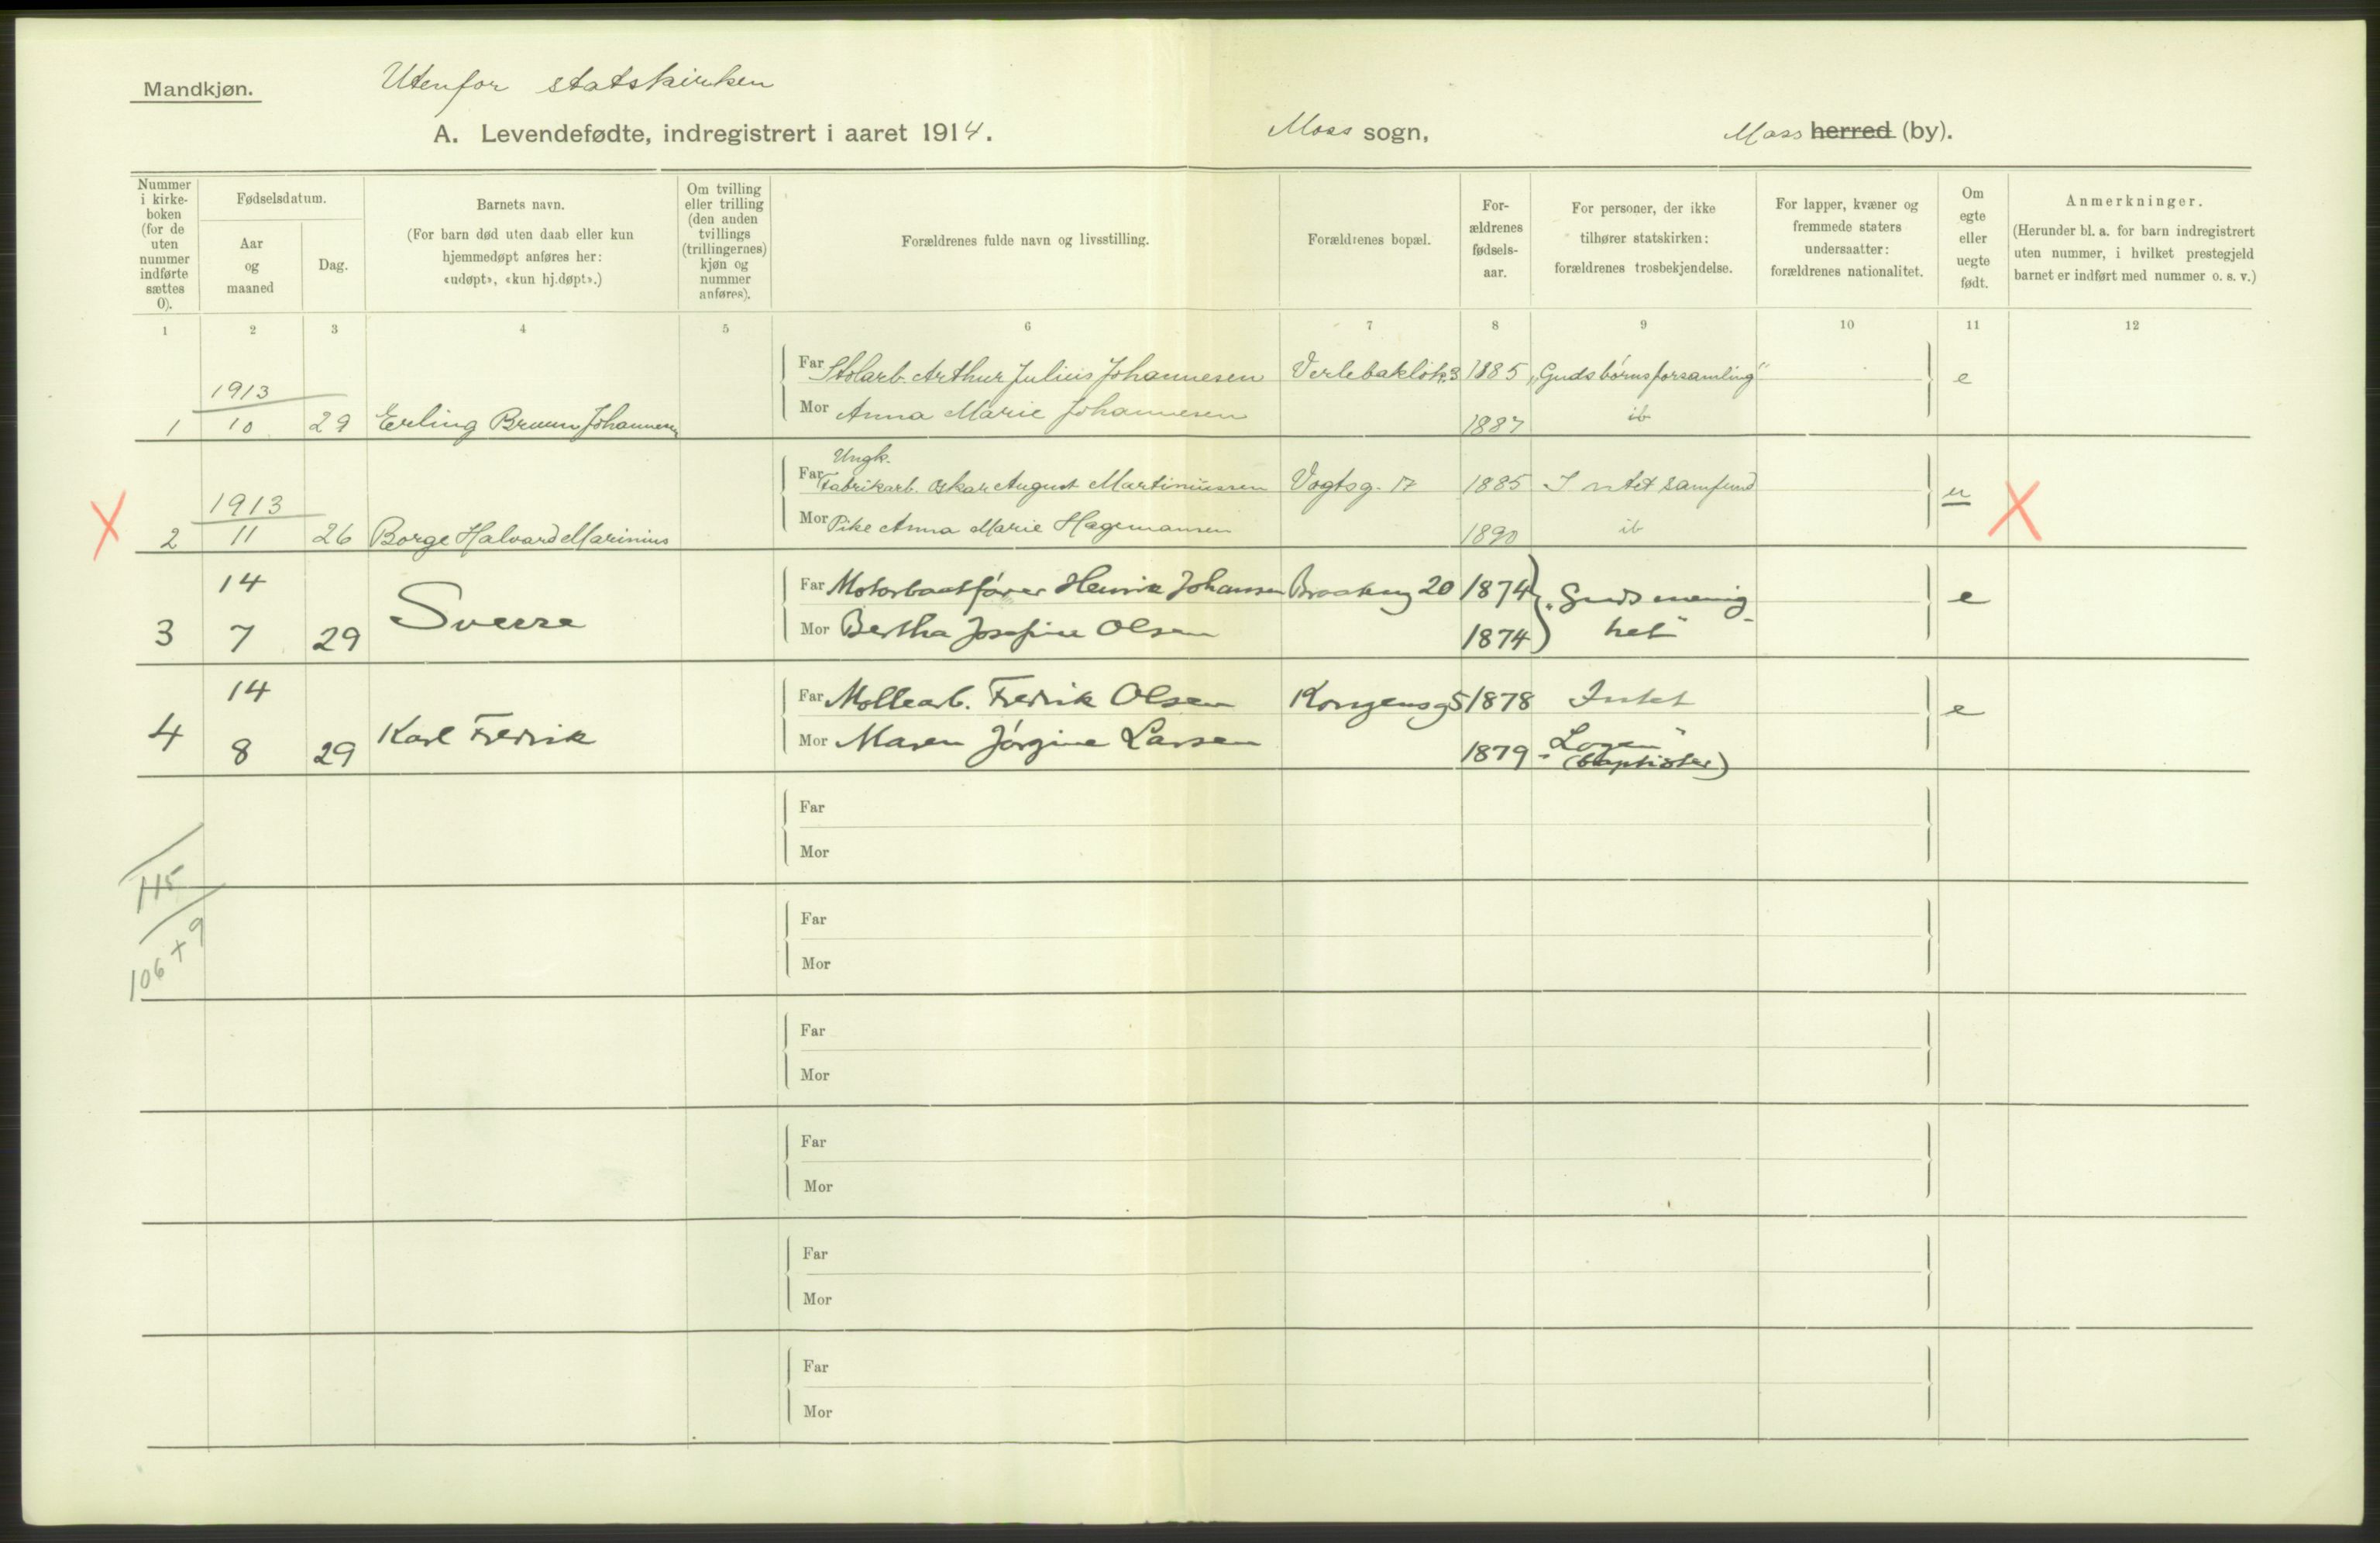 Mandkjøn.
Utenfor statskirken
A. Levendefødte, indregistrert i aaret 1914.
Moss sogn,
Moss herred (by).
Nummer i kirke-boken (for de uten nummer indførte sættes 0).
Fødselsdatum.
Aar og maaned
Dag.
Barnets navn.
(For barn død uten daab eller kun hjemmedøpt anføres her: «udøpt», «kun hj.døpt».)
Om tvilling eller trilling (den anden tvillings (trillingernes) kjøn og nummer anføres).
Forældrenes fulde navn og livsstilling.
Forældrenes bopæl.
For-ældrenes fødsels-aar.
For personer, der ikke tilhører statskirken: forældrenes trosbekjendelse.
For lapper, kvæner og fremmede staters undersaatter: forældrenes nationalitet.
Om egte eller uegte født.
Anmerkninger.
(Herunder bl. a. for barn indregistrert uten nummer, i hvilket prestegjeld barnet er indført med nummer o. s. v.)
1 2 3 4 5 6 7 8 9 10 11 12
1913
Far Stolarb. Arthur Julius Johannesen 1885 „Guds børns forsamling" e
1 10 29 Erling Bruun Johannesen
Mor Anna Marie Johannesen 1887 ib
Ungk.
1913
Far Fabrikarb. Oskar August Martiniussen Vogtsg. 17 1885 Intet samfund u
X 2 11 26 Borge Halvard Marinius X
Mor Pike Anna Marie Hagemansen 1890 ib
14
Far Motorbaatfører Henrik Johansen 20 1874 „Guds menig- e
3 7 29 Sverre
Mor Bertha Josefine Olsen 1874 het"
14
Far Møllearb. Fredrik Olsen Kongensg 5 1878 Intet e
4 8 29 Karl Fredrik
Mor Maren Jørgine Larsen 1879 „Logen"
(baptister)
Far
Mor
115
Far
Mor
106 + 9
Far
Mor
Far
Mor
Far
Mor
Far
Mor